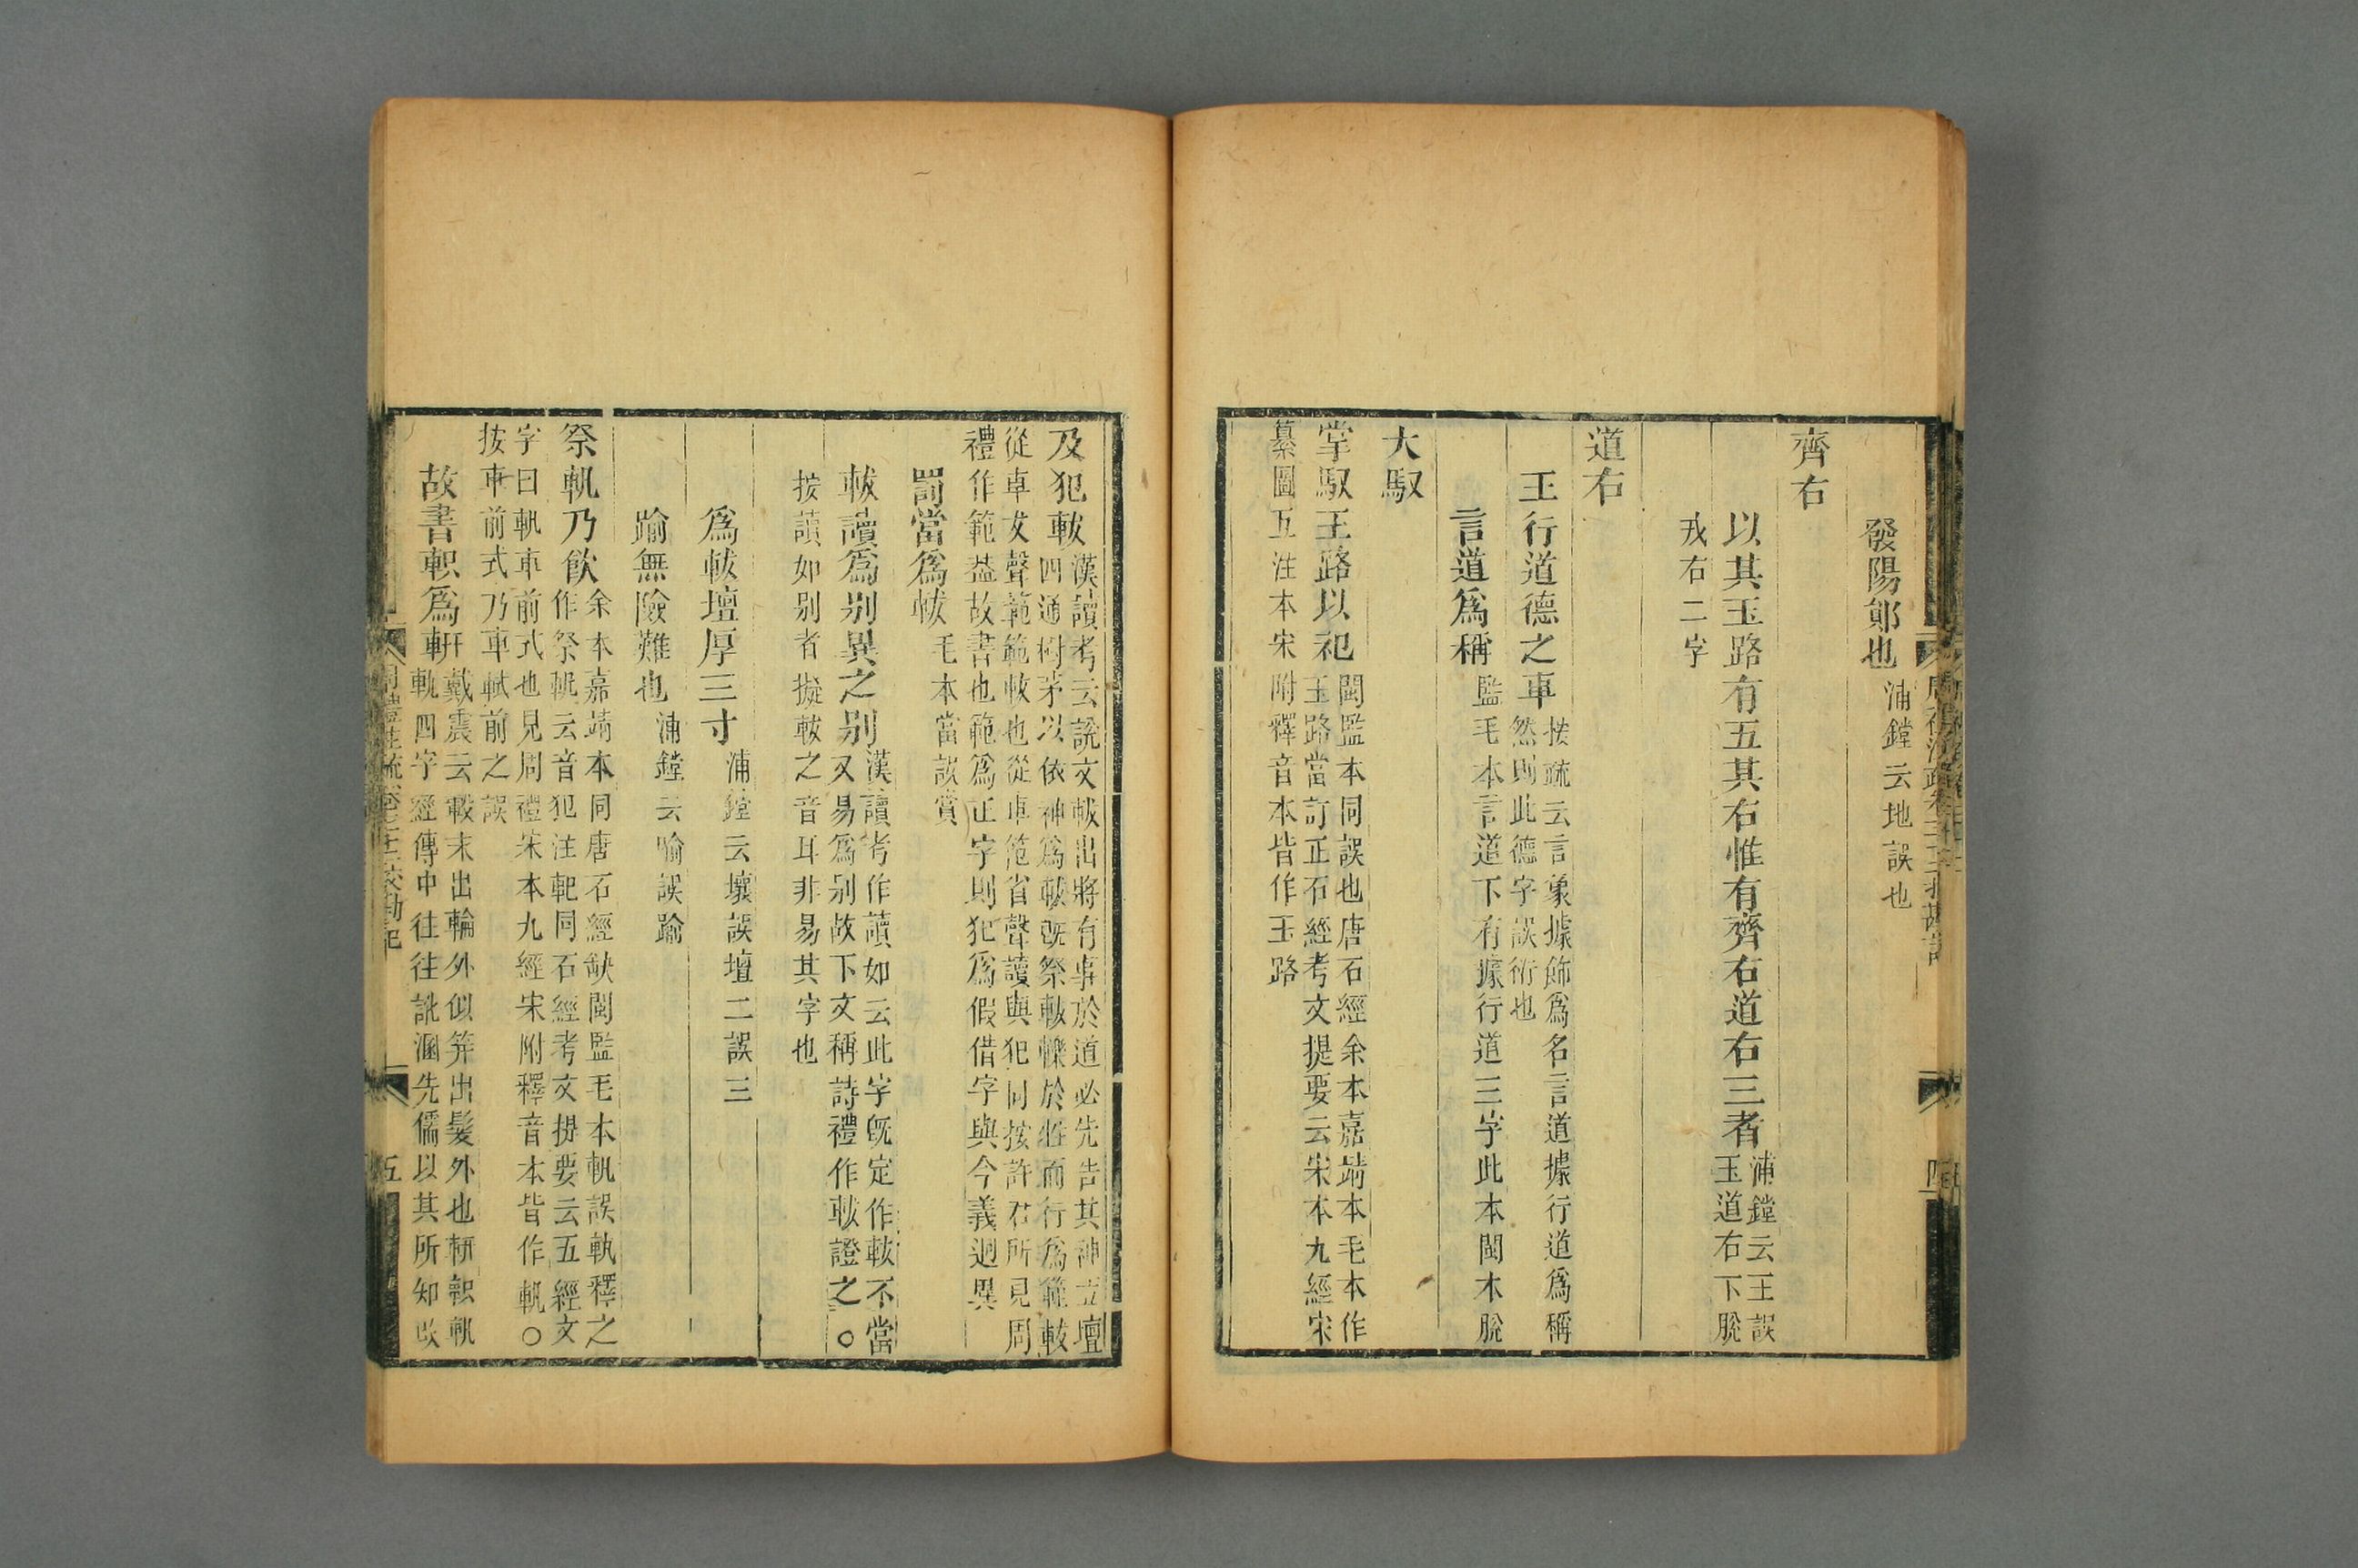 發陽鄖也浦鏜云地誤也
齊右
以其玉路有五其右惟有齊右道右三者浦鏜云王誤
玉道右下脫
戎右二字
道右
王行道德之車按疏云言象據飾爲名言道據行道爲稱
然則此德字誤衍也
言道爲稱監毛本言道下有據行道三字此本閩本脫
大馭
掌馭玉路以祀閩監本同誤也唐石經余本嘉靖本毛本作
玉路當訂正石經考文提要云宋本九經宋
纂圖互注本宋附釋音本皆作玉路
及犯軷漢讀考云說文軷出將有事於道必先告其神立壇
四通樹茅以依神爲軷旣祭軷轢於牲而行爲範軷
從車犮聲範範軷也從車笵省聲讀與犯同按許君所見周
禮作範葢故書也範爲正字則犯爲假借字與今義迥異
罰當爲軷毛本當誤賞
軷讀爲别異之别漢讀考作讀如云此字旣定作軷不當
又易爲别故下文稱詩禮作軷證之○
按讀如别者擬軷之音耳非易其字也
爲軷壇厚三寸浦鏜云壤誤壇二誤三
踰無險難也浦鏜云喻誤踰
祭軓乃飲余本嘉靖本同唐石經缺閩監毛本軓誤軌釋之
作祭軓云音犯注軓同石經考文提要云五經文
字曰軓車前式也見周禮宋本九經宋附釋音本皆作軓○
按車前式乃車軾前之誤
故書軹爲軒戴震云轂末出輪外似笄出髮外也軒軹軓
軌四字經傳中往往訛溷先儒以其所知改
五